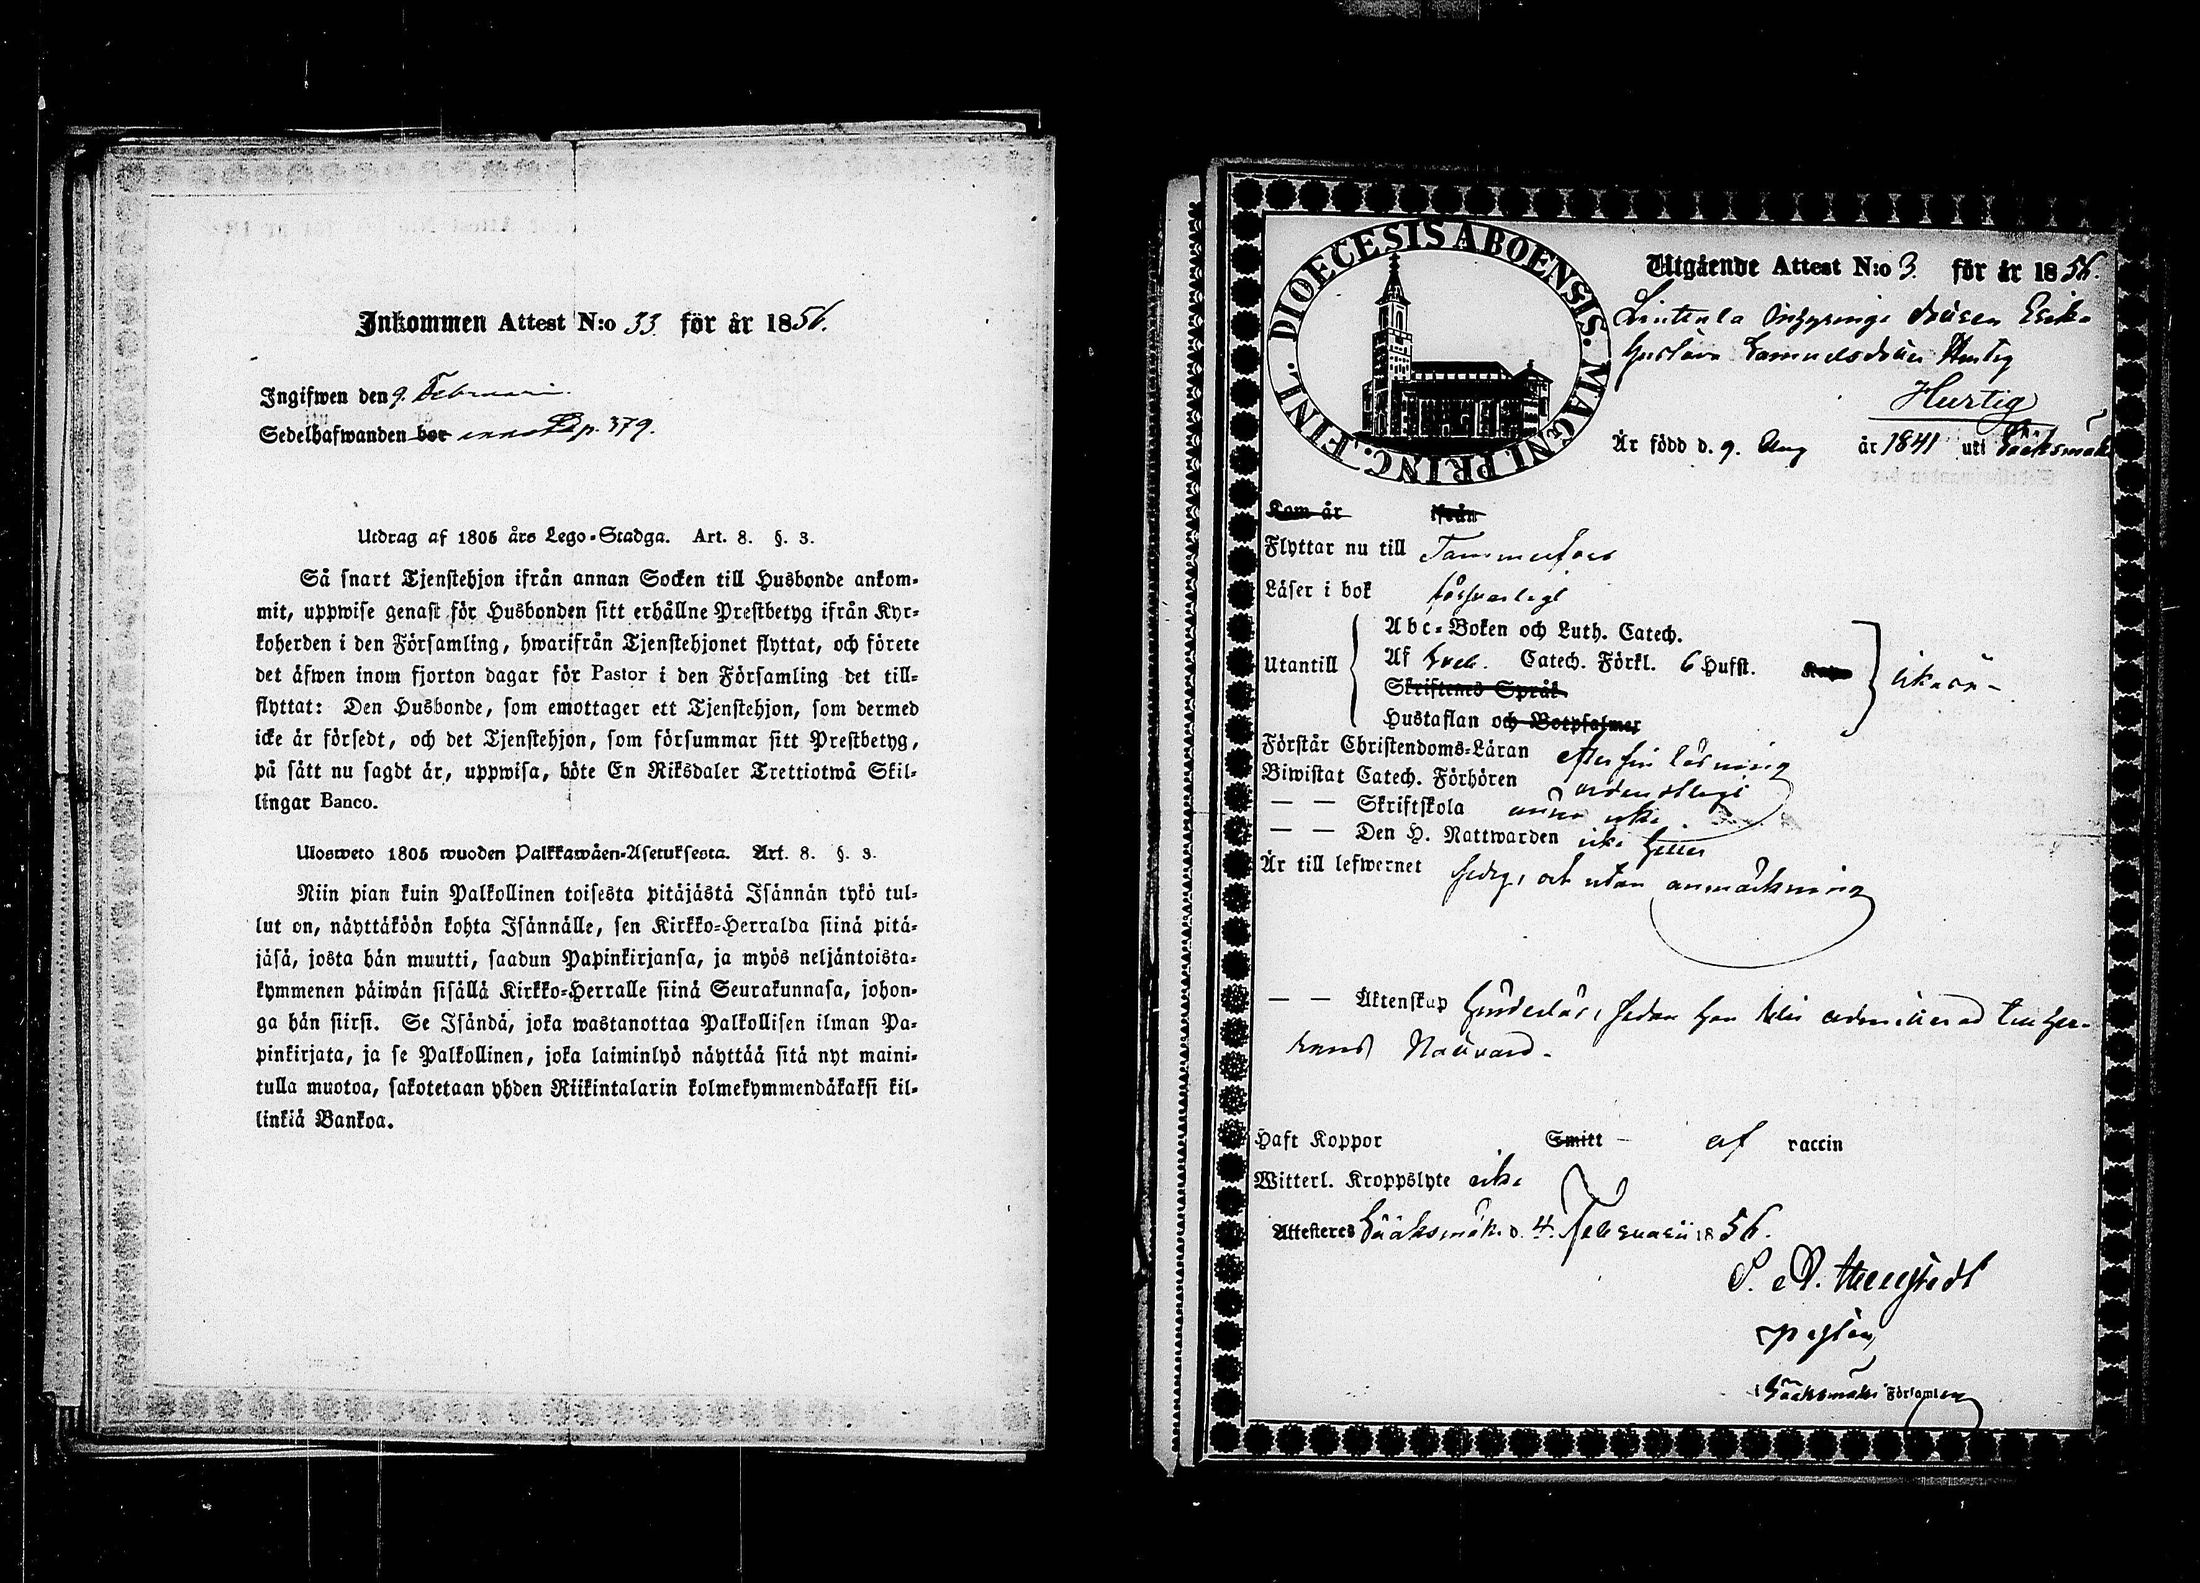 Inkommen Attest N:o 33 för år 1856.
Ingifwen den 9. Februarii.
Sedelhafwanden bor p. 379.
Utdrag af 1805 års Lego-Stadga. Art. 8. §. 3.
Så snart Tjenstehjon ifrån annan Socken till Husbonde ankom-
mit, uppwise genast för Husbonden sitt erhållne Prestbetyg ifrån Kyr-
koherden i den Församling, hwarifrån Tjenstehjonet flyttat, och förete
det äfwen inom fjorton dagar för Pastor i den Församling det till-
flyttat: Den Husbonde, som emottager ett Tjenstehjon, som dermed
icke är försedt, och det Tjenstehjon, som försummar sitt Prestbetyg,
på sätt nu sagdt är, uppwisa, böte En Riksdaler Trettiotwå Skil-
lingar Banco.
Ulosweto 1805 wuoden Palkkawäen-Asetuksesta. Art. 8. §. 3.
Niin pian kuin Palkollinen toisesta pitäjästä Isännän tykö tul-
lut on, näyttäköön kohta Isännälle, sen Kirkko-Herralda siinä pitä-
jäsä, josta hän muutti, saadun Papinkirjansa, ja myös neljäntoista-
kymmenen päiwän sisällä Kirkko-Herralle siinä Seurakunnasa, johon-
ga hän siirsi. Se Isändä, joka wastanottaa Palkollisen ilman Pa-
pinkirjata, ja se Palkollinen, joka laiminlyö näyttää sitä nyt maini-
tulla muotoa, sakotetaan yhden Riikintalarin kolmekymmendäkaksi kil-
linkiä Bankoa.
DIOECESIS ABOENSIS. MAGNI PRINC. FINL.
Utgående Attest N:o 3 för år 1856.
Lintula Inhysinge
Gustava Samuelsdotter Hurtig
Hurtig
Är född d. 9. Aug år 1841 uti Sääksmäki
Kom år ifrån
Flyttar nu till Tammerfors
Läser i bok försvarligt
Utantill
Abc-Boken och Luth. Catech.
Af Sveb. Catech. Förkl. 6 Hufst.
Skriftenes Språk
Hustaflan och Botpsalmer
Förstår Christendoms-Läran efter sin läsning
Biwistat Catech. Förhören ordentligt
— — Skriftskola ännu icke
— — Den H. Nattwarden icke heller
Är till lefwernet sedig, och utan anmärkning
— — Äktenskap hinderlös, sedan hon blir admitterad till Her-
rans Nattvard.
Haft Koppor Smitt - af vaccin
Witterl. Kroppslyte icke
Attesteres Sääksmäki d. 4. Februarii 1856.
i Sääksmäki Församling